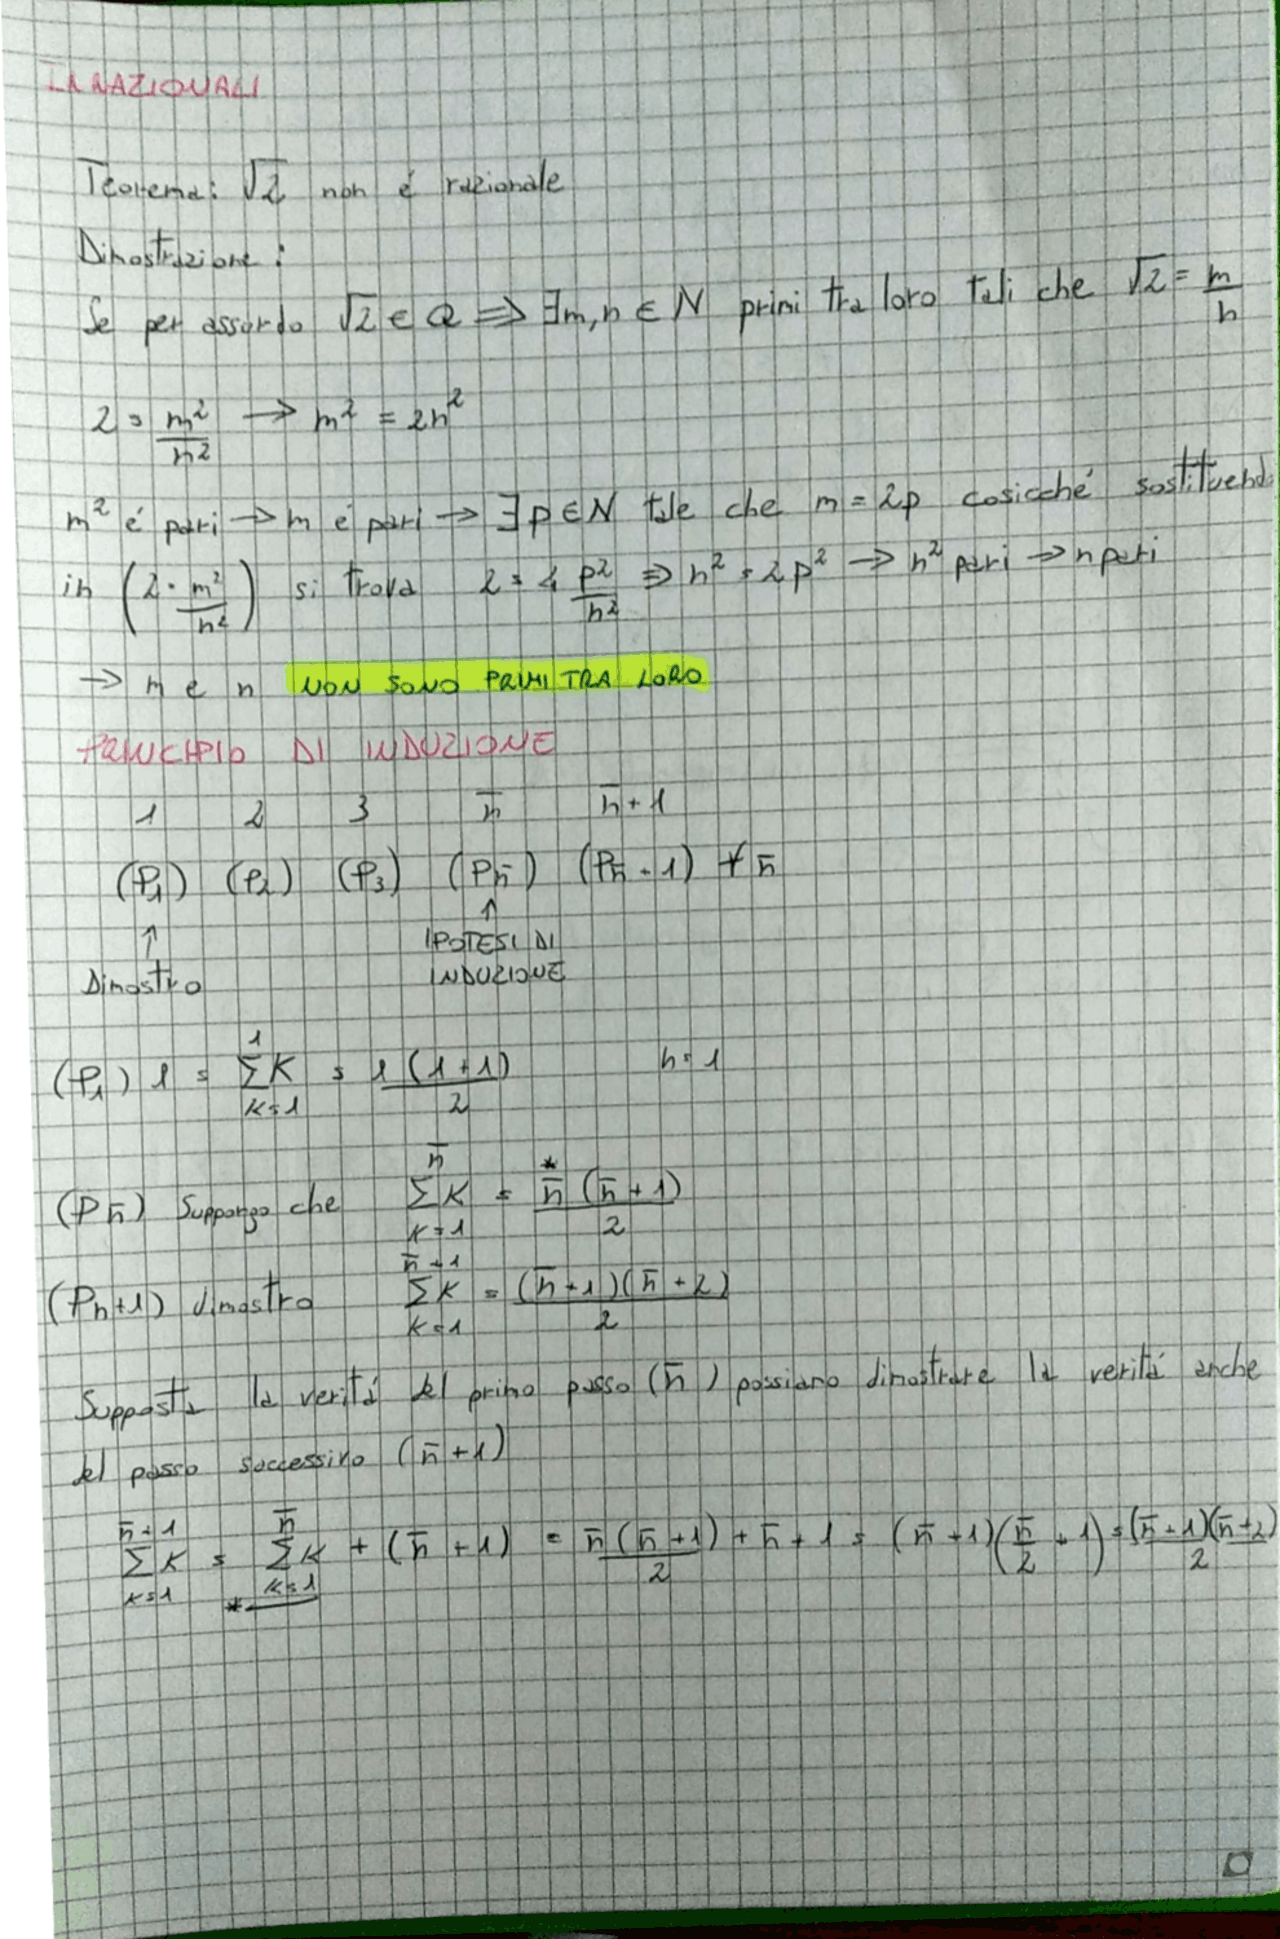 IRRAZIONALI
Teorema: √2 non é razionale
Dimostrazione:
Se per assurdo √2 ∈ Q ⇒ ∃m,n ∈ N primi tra loro tali che √2 = m/n
2 = m²/n² → m² = 2n²
m² é pari → m é pari → ∃p∈N tale che m = 2p cosicché sostituendo
in (2 = m²/n²) si trova 2 = 4 p²/n² ⇒ n² = 2p² → n² pari → n pari
→ m e n NON SONO PRIMI TRA LORO
PRINCIPIO DI INDUZIONE
1 2 3 n̅ n̅+1
(P₁) (P₂) (P₃) (Pn̅) (Pn̅+1) ∀n̅
↑ ↑
Dimostro IPOTESI DI
INDUZIONE
(P₁) 1 = ∑_{k=1}^{1} K = 1(1+1)/2 n=1
(Pn̅) Suppongo che ∑_{k=1}^{n̅} K =* n̅(n̅+1)/2
(Pn+1) dimostro ∑_{k=1}^{n̅+1} K = (n̅+1)(n̅+2)/2
Supposta la veritá del primo passo (n̅) possiamo dimostrare la veritá anche
del passo successivo (n̅+1)
∑_{k=1}^{n̅+1} K = * ∑_{k=1}^{n̅} K + (n̅+1) = n̅(n̅+1)/2 + n̅+1 = (n̅+1)(n̅/2 + 1) = (n̅+1)(n̅+2)/2